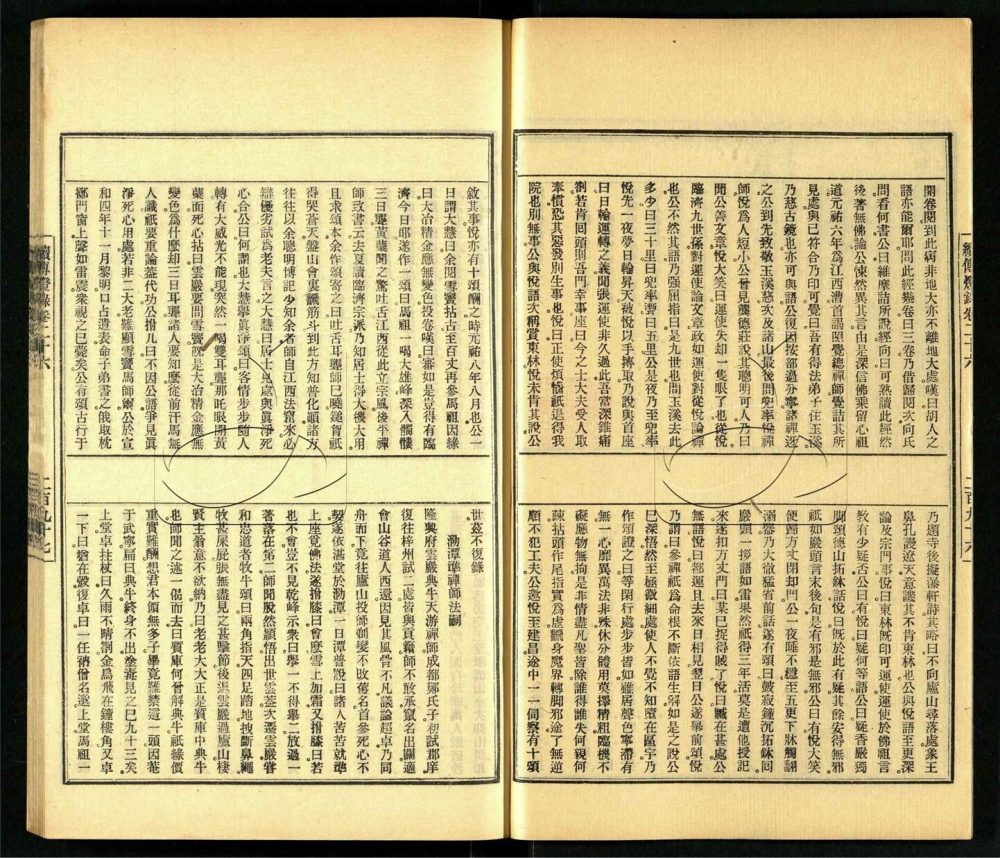 續傳燈錄卷二十六
開卷閱到此病非地大亦不離地大處嘆曰胡人之
語亦能爾耶問此經幾卷曰三卷乃借歸閱次向氏
問看何書公曰維摩詰所說經向曰可熟讀此經然
後著無佛論公悚然異其言由是深信佛乘留心祖
道元祐六年爲江西漕首謁照覺總禪師覺詰其所
見處與已符合乃印可覺曰吾有得法弟子住玉溪
乃慈古鏡也亦可與語公復因按部過分寧諸禪迓
之公到先致敬玉溪慈次及諸山最後問兜率悅禪
師悅爲人短小公曾見龔德莊說其聰明可人乃曰
聞公善文章悅大笑曰運使失却一隻眼了也從悅
臨濟九世孫對運使論文章政如運使對從悅論禪
也公不然其語乃强屈指曰是九世也問玉溪去此
多少曰三十里曰兜率聻曰五里公是夜乃至兜率
悅先一夜夢日輪昇天被悅以手摶取乃說與首座
曰日輪運轉之義聞張運使非久過此吾當深錐痛
劄若肯回頭則吾門幸事座曰今之士大夫受人取
奉慣恐其惡發別生事也悅曰正使煩惱祇退得我
院也別無事公與悅語次稱賞東林悅未肯其說公
二百九十六
乃題寺後擬瀑軒詩其略曰不向廬山尋落處象王
鼻孔謾遼天意譏其不肯東林也公與悅語至更深
論及宗門事悅曰東林既印可運運使於佛祖言
教有少疑否公曰有悅曰疑何等語公曰疑香嚴獨
脚頌德山拓鉢話悅曰既於此有疑其餘安得無邪
祇如巖頭言末後句是有邪是無邪公曰有悅大笑
便歸方丈閉却門公一夜睡不穩至五更下牀觸翻
溺器乃大徹猛省前話遂有頌曰皷寂鐘沉拓鉢回
巖頭一拶語如雷果然祇得三年活莫是遭他授記
來遂扣方丈門曰某已捉得賊了悅曰贓在甚處公
無語悅曰都運且去來日相見翌日公遂舉前頌悅
乃謂曰參禪祇爲命根不斷依語生解如是之說公
已深悟然至極微細處使人不覺不知墮在區宇乃
作頌證之曰等閑行處步步皆如雖居聲色寧滯有
無一心靡異萬法非殊休分體用莫擇精粗臨機不
礙應物無拘是非情盡凡聖皆除誰得誰失何親何
疎拈頭作尾指實爲虛翻身魔界轉脚邪途了無逆
順不犯工夫公邀悅至建昌途中一一伺察有十頌
敘其事悅亦有十頌酬之時元祐八年八月也公一
日謂大慧曰余閱雪竇拈古至百丈再參馬祖因緣
曰大冶精金應無變色投卷嘆曰審如是豈得有臨
濟今日耶遂作一頌曰馬祖一喝大雄峰深入髑髏
三日聾黃蘗聞之驚吐舌江西從此立宗風後平禪
師致書云去夏讀臨濟宗派乃知居士得大機大用
且求頌本余作頌寄之曰吐舌耳聾師已曉鎚胷祇
得哭蒼天盤山會裏翻筋斗到此方知普化顛諸方
往往以余聰明博記少知余者師自江西法窟來必
辯優劣試爲老夫言之大慧曰居士見處與眞淨死
心合公曰何謂也大慧舉眞淨頌曰客情步步隨人
轉有大威光不能現突然一喝雙耳聾那吒眼開黃
蘗面死心拈曰雲巖要問雪竇旣是大冶精金應無
變色爲什麼却三日耳聾諸人要知麼從前汗馬無
人識祇要重論蓋代功公拊几曰不因公語爭見眞
淨死心用處若非二大老難顯雪竇馬師爾公於宣
和四年十一月黎明口占遺表命子弟書之俄取枕
擲門窗上聲如雷震衆視之已薨矣公有頌古行于
世茲不復錄
泐潭準禪師法嗣
隆興府雲巖典牛天游禪師成都鄭氏子初試郡庠
復往梓州試二處皆與貢籍師不敢承竄名出關適
會山谷道人西還因見其風骨不凡議論超卓乃同
舟而下竟往廬山投師剃髮不改舊名首參死心不
契遂依湛堂於泐潭一日潭普說曰諸人苦苦就準
上座覓佛法遂拊膝曰會麼雪上加霜又拊膝曰若
也不會豈不見乾峰示衆曰舉一不得舉二放過一
著落在第二師聞脫然穎悟出世雲蓋次遷雲巖嘗
和忠道者牧牛頌曰兩角指天四足踏地拽斷鼻繩
牧甚屎屁張無盡見之甚擊節後退雲巖過廬山棲
賢主翁意不欲納乃曰老老大大正是質庫中典牛
也師聞之述一偈而去曰質庫何曾解典牛祇緣價
重實難酬想君本領無多子畢竟難禁這一頭因菴
于武寧扁曰典牛終身不出塗毒見之已九十三矣
上堂卓拄杖曰久雨不晴劄金烏飛在鐘樓角又卓
一下曰猶在殼復卓曰一任衲僧名邈上堂馬祖一
續傳燈錄卷二十六
二百九十七